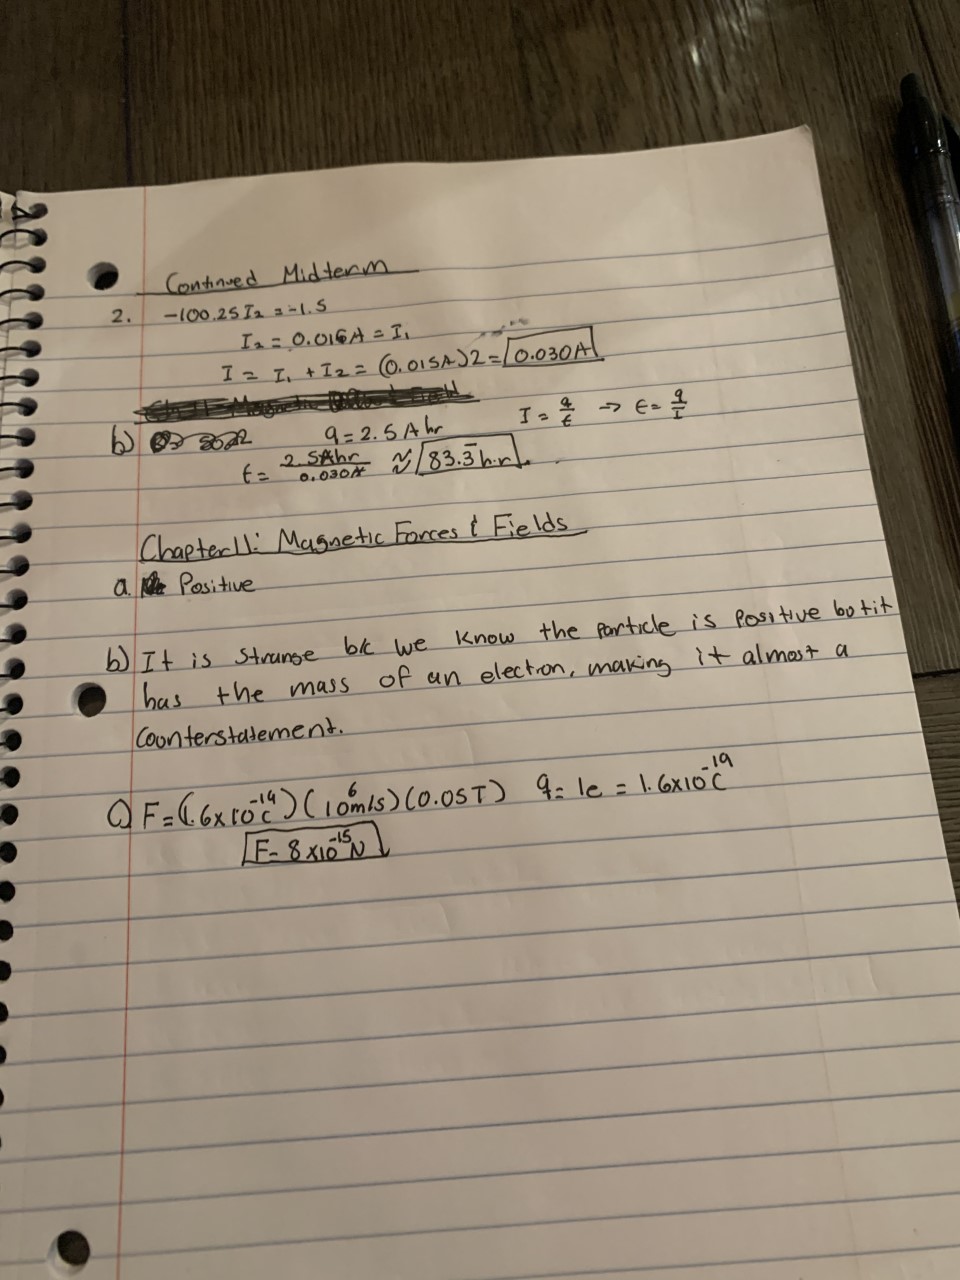 Continued Midterm
2. -100.25 I₂ = -1.5
I₂ = 0.015A = I₁
I = I₁ + I₂ = (0.015A)2 = 0.030A
b) q = 2.5 A hr I = q/t → t = q/I
t = 2.5Ahr/0.030A ≈ 83.3̅ hr
Chapter 11: Magnetic Forces & Fields
a. Positive
b) It is strange b/c we know the particle is positive but it
has the mass of an electron, making it almost a
counterstatement.
c) F = (1.6x10⁻¹⁹C)(10⁶m/s)(0.05T) q = 1e = 1.6x10⁻¹⁹C
F = 8x10⁻¹⁵N